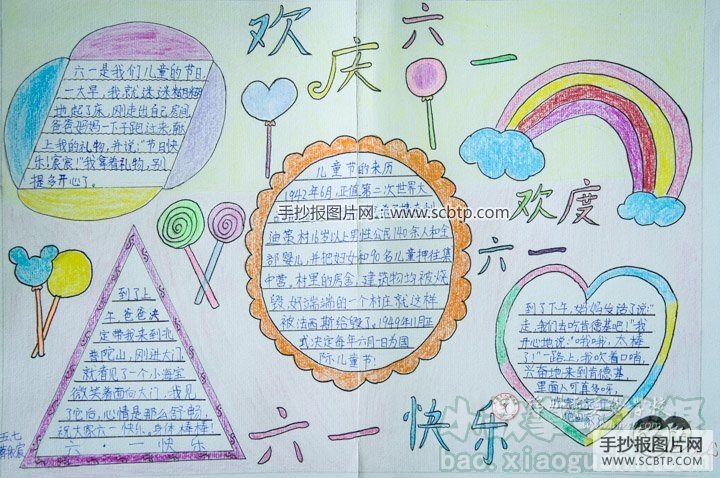 欢庆六一
六一是我们儿童的节日,
一大早,我就迷迷糊糊
地起了床,刚走出自己房间,
爸爸妈妈一下子跑过来,献
上我的礼物,并说:"节日快
乐!宸宸!"我拿着礼物,别
提多开心了。
儿童节的来历
1942年6月,正值第二次世界大
手抄报图片网 www.scbtp.com
油菜村16岁以上男性公民140余人和全
部婴儿,并把妇女和90名儿童押往集
中营。村里的房舍、建筑物均被烧
毁,好端端的一个村庄就这样
被法西斯给毁了。1949年11月正
式决定每年六月一日为国
际儿童节!
欢度
六一
到了上
午,爸爸决
定带我来到北
普陀山,刚进大门,
就看见了一个小海宝
微笑着面向大门,我见
了它后,心情是那么舒畅,
祝大家六一快乐,身体棒棒!
六·一快乐
到了下午,妈妈发话了说:"
走,我们去吃肯德基吧!"我
开心地说:"哦哦,太棒
了!"一路上,我吹着口哨,
兴奋地来到肯德基,
里面人可真多呀,
六一快乐
五、七
手抄报图片网
WWW.SCBTP.COM
bao.xiaogu